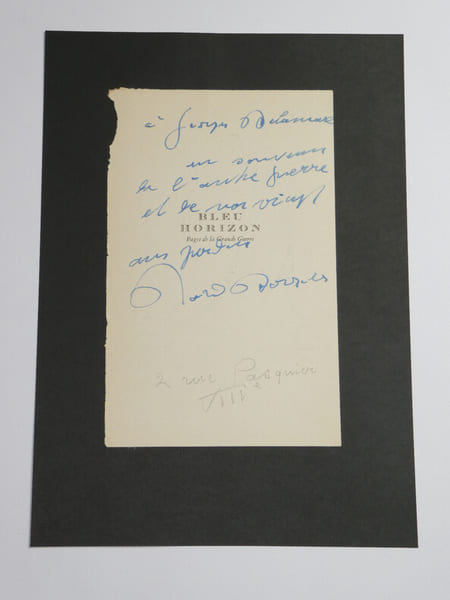 à Georges Delamare
en souvenir
de l'autre guerre
et de nos vingt
BLEU
HORIZON
Pages de la Grande Guerre
ans perdus
Roland Dorgelès
2 rue Pasquier
VIIIe